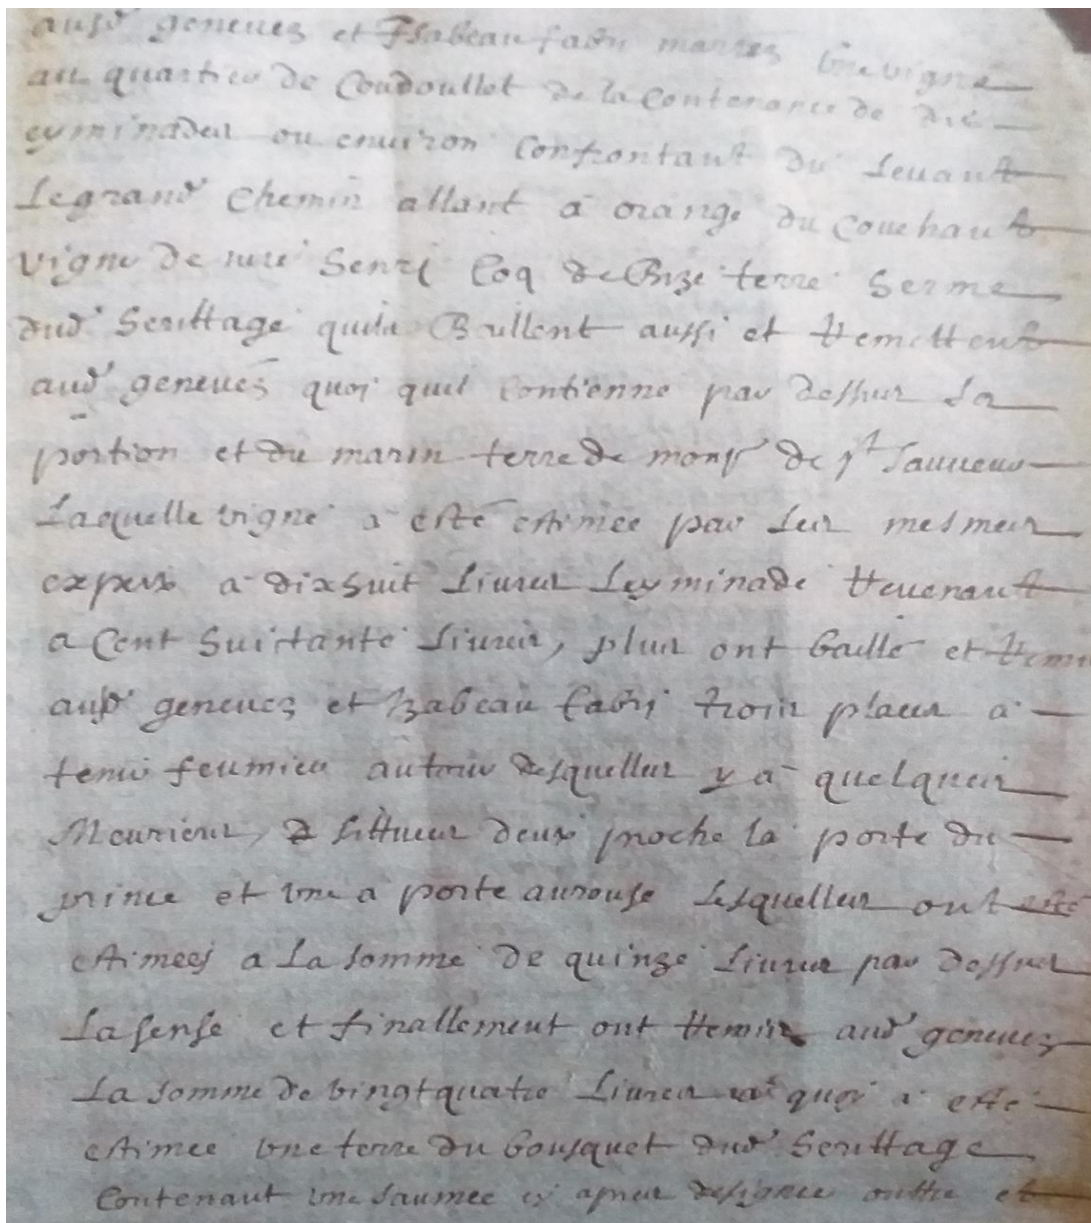 ausd geneves et Isabeau fabri mariez une vigne
au quartier de Coudoullet de la Contenance de dix
eyminades ou environ Confrontant du levant
Le grand Chemin allant a orange du Couchant
vigne de Henri Coq de Bize terre herme
dud herittage quila Baillent aussi et Remettent
aud geneves quoi quil Contienne par dessus La
portion et du marin terre de monsr de st Sauveur
Laquelle vigne a esté estimée par les mesmes
expers a dixhuit livres Leyminade Revenant
a Cent huittante livres, plus ont baillé et Remis
ausd geneves et Izabeau fabri trois places a
tenir feumier autour desquelles y a quelques
Meuriers, situees deux proche la porte du
prince et une a porte aurouse Lesquelles ont esté
estimees a La somme de quinze livres par dessus
La sense et finallement ont Remis aud geneves
La somme de vingtquatre livres quoi a esté
estimee une terre du bousquet dud herittage
Contenant une saumee ci apres designee outtre et